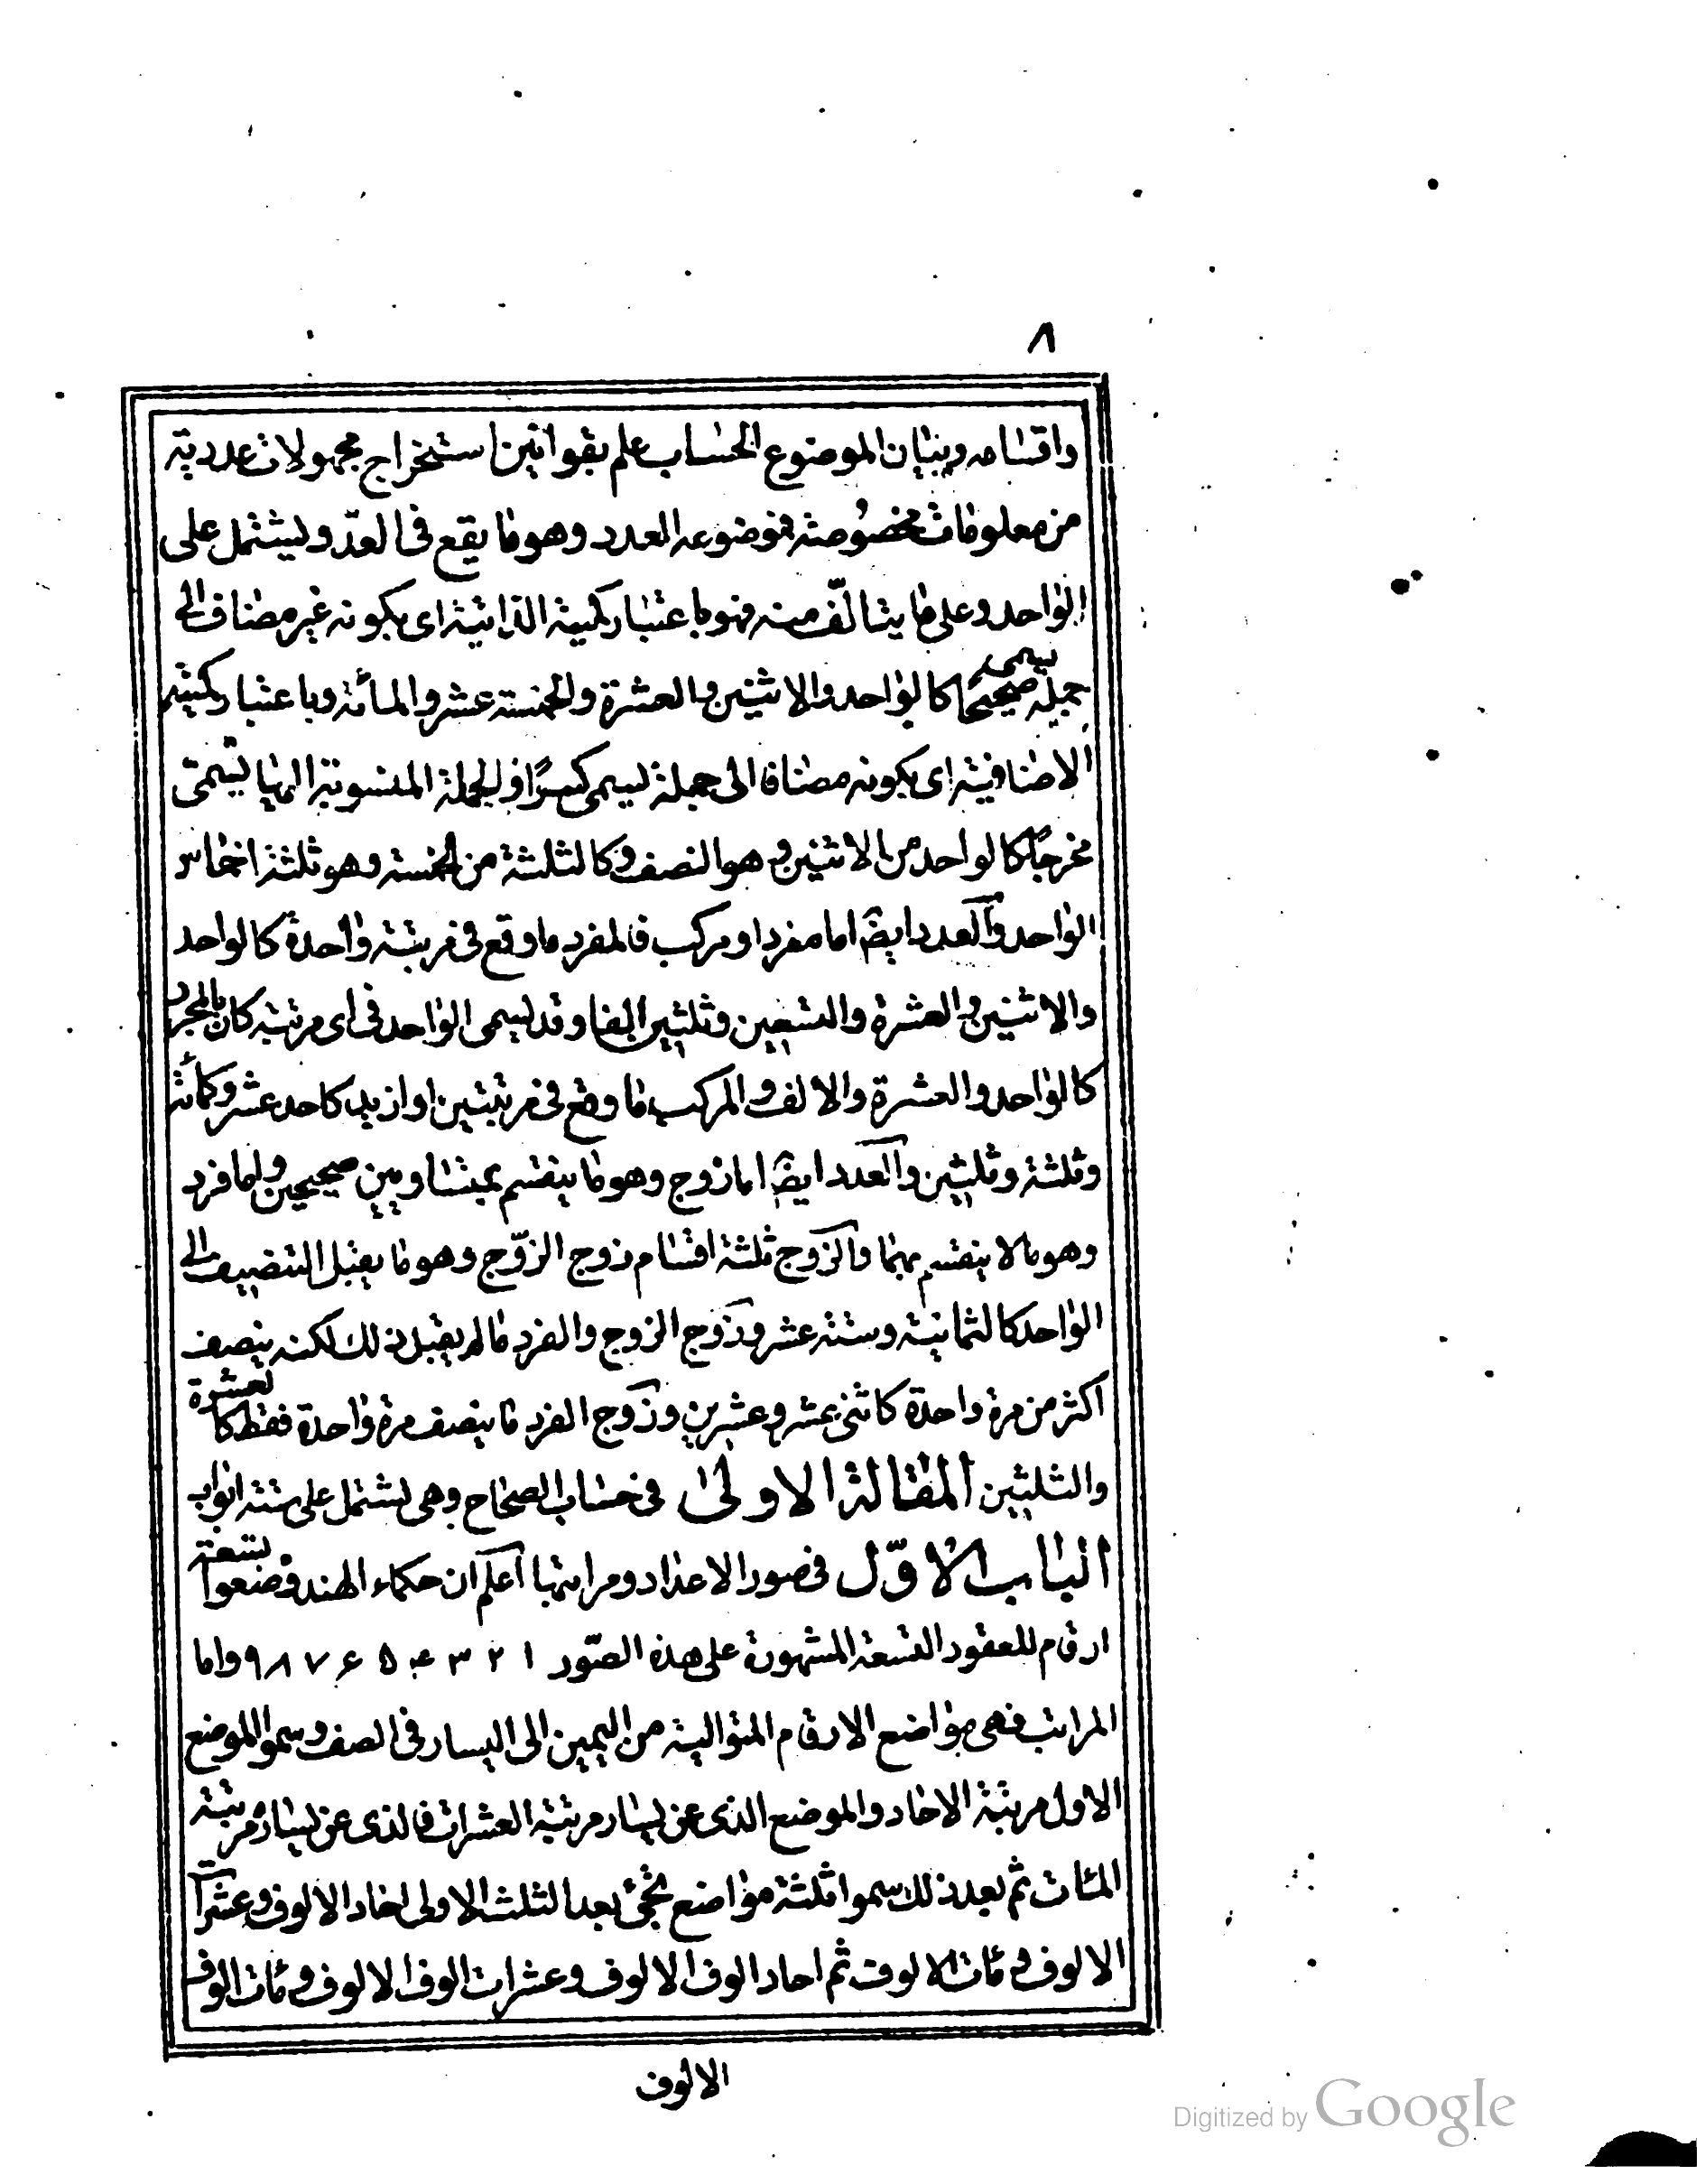 ٨
واقسامه وبيان الموضوع الحساب علم بقوانين استخراج مجهولات عددية
من معلومات مخصوصة فموضوعه العدد وهو ما يقع فى العدّ ويشتمل على
الواحد وعلى ما يتألّف منه فهو باعتبار كميته الذاتية اى بكونه غير مضاف الى
جملة يسمى صحيحًا كالواحد والاثنين والعشرة والخمسة عشر والمائة وباعتبار كميته
الاضافية اى بكونه مضافا الى جملة يسمى كسرًا والجملة المنسوبة اليها يسمّى
مخرجًا كالواحد من الاثنين وهو النصف وكالثلثة من الخمسة وهو ثلثة اخماس
الواحد والعدد ايضًا اما مفرد او مركب فالمفرد ما وقع فى مرتبة واحدة كالواحد
والاثنين والعشرة والتسعين وثلثين الفا وقد يسمى الواحد فى اى مرتبة كان بالمجرد
كالواحد والعشرة والالف والمركب ما وقع فى مرتبتين او ازيد كاحد عشر وكمائة
وثلثة وثلثين والعدد ايضًا اما زوج وهو ما ينقسم بمتساويين صحيحين واما فرد
وهو ما لا ينقسم بهما والزوج ثلثة اقسام زوج الزّوج وهو ما يقبل التنصيف الى
الواحد كالثمانية وستة عشر وزوج الزوج والفرد ما لم يقبل ذلك لكنه ينصف
اكثر من مرة واحدة كاثنى عشر وعشرين وزوج الفرد ما ينصف مرة واحدة فقط كالعشرة
والثلثين المقالة الاولى فى حساب الصحاح وهى يشتمل على ستة ابواب
الباب الاوّل فى صور الاعداد ومراتبها اعلم ان حكماء الهند وضعوا تسعة
ارقام للعقود التسعة المشهورة على هذه الصّور ١ ٢ ٣ ۴ ۵ ۶ ٧ ٨ ٩ واما
المراتب فهى مواضع الارقام المتوالية من اليمين الى اليسار فى الصف وسموا الموضع
الاول مرتبة الاحاد والموضع الذى عن يساره مرتبة العشرات فالذى عن يساره مرتبة
المئات ثم بعد ذلك سموا ثلثة مواضع تجئ بعد الثلث الاولى احاد الالوف وعشرات
الالوف ومئات الالوف ثم احاد الوف الالوف وعشرات الوف الالوف ومئات الوف
الالوف
Digitized by Google